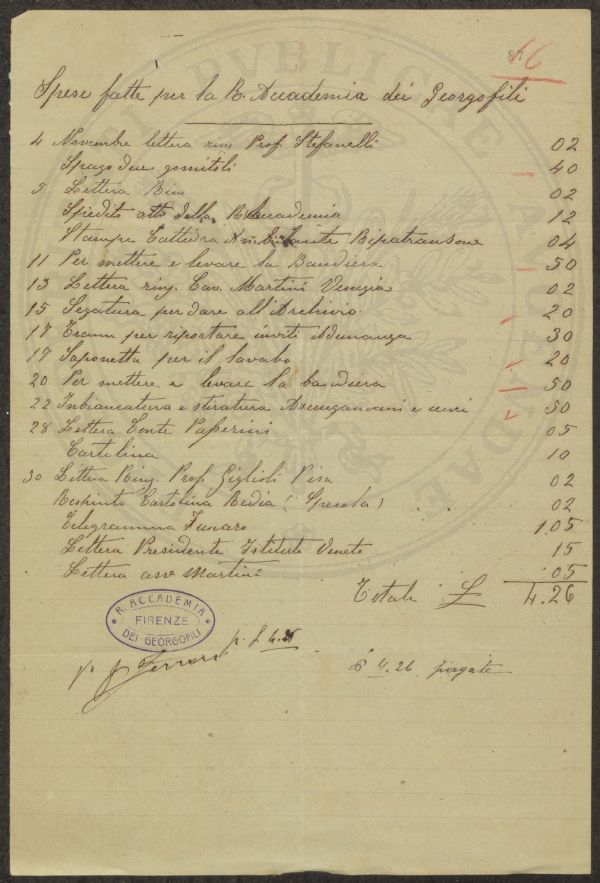 16
Spese fatte per la R. Accademia dei Georgofili
4 Novembre lettera rin Prof. Stefanelli 02
Spago due gomitoli 40
5 Lettera Rin 02
Spedito atti della R. Accademia 12
Stampe Cattedra Ambulante Ripatransone 04
11 Per mettere e levare la Bandiera 50
13 Lettera ring. Cav. Martini Venezia 02
15 Segatura per dare all'Archivio 20
17 Tram per riportare inviti Adunanza 30
19 Saponetta per il lavabo 20
20 Per mettere e levare la bandiera 50
22 Inbiancatura e stiratura Asciugamani e 50
28 Lettera Conte Passerini 05
Cartolina 10
30 Lettera Ring. Prof. Giglioli Pisa 02
Respinto Cartolina Redia (Specola) 02
Telegramma Funaro 1.05
Lettera Presidente Istituto Veneto 15
Lettera Martini 05
Totale £ 4.26
R. ACCADEMIA
FIRENZE
DEI GEORGOFILI
p. £ 4.26
£ 4.26 pagate